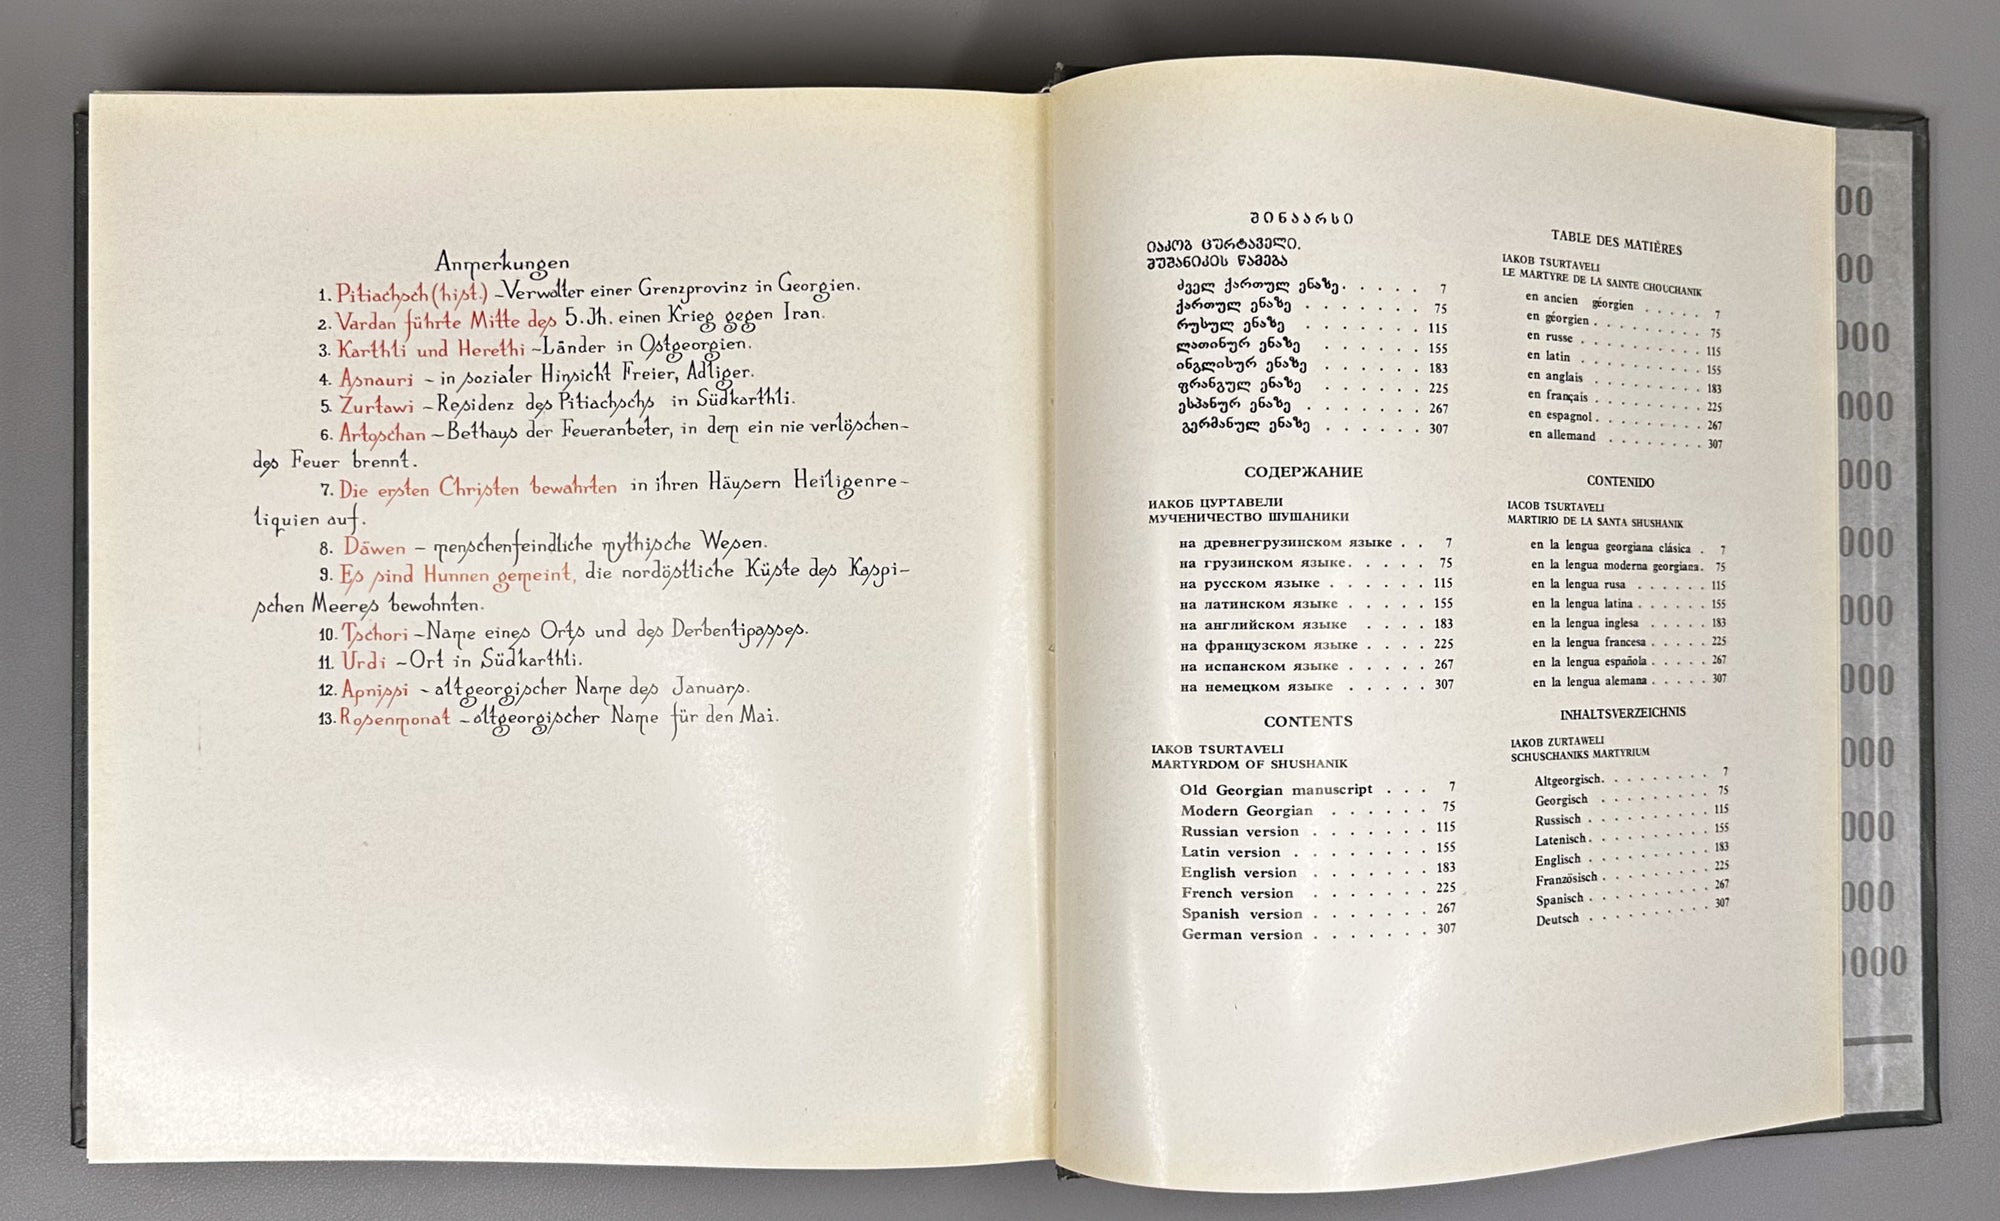 Anmerkungen
1. Pitiachsch (hist.) – Verwalter einer Grenzprovinz in Georgien.
2. Vardan führte Mitte des 5. Jh. einen Krieg gegen Iran.
3. Karthli und Herethi – Länder in Ostgeorgien.
4. Asnauri – in sozialer Hinsicht Freier, Adliger.
5. Zurtawi – Residenz des Pitiachschs in Südkarthli.
6. Artoschan – Bethaus der Feueranbeter, in dem ein nie verlöschen-
des Feuer brennt.
7. Die ersten Christen bewahrten in ihren Häusern Heiligenre-
liquien auf.
8. Däwen – menschenfeindliche mythische Wesen.
9. Es sind Hunnen gemeint, die nordöstliche Küste des Kaspi-
schen Meeres bewohnten.
10. Tschori – Name eines Orts und des Derbentipasses.
11. Urdi – Ort in Südkarthli.
12. Apnissi – altgeorgischer Name des Januars.
13. Rosenmonat – altgeorgischer Name für den Mai.
შინაარსი
იაკობ ცურტაველი.
შუშანიკის წამება
ძველ ქართულ ენაზე. . . . . 7
ქართულ ენაზე . . . . . . . 75
რუსულ ენაზე . . . . . . . 115
ლათინურ ენაზე . . . . . . 155
ინგლისურ ენაზე . . . . . . 183
ფრანგულ ენაზე . . . . . . 225
ესპანურ ენაზე . . . . . . . 267
გერმანულ ენაზე . . . . . . 307
СОДЕРЖАНИЕ
ИАКОБ ЦУРТАВЕЛИ
МУЧЕНИЧЕСТВО ШУШАНИКИ
на древнегрузинском языке . . 7
на грузинском языке. . . . . 75
на русском языке . . . . . . 115
на латинском языке . . . . . 155
на английском языке . . . . 183
на французском языке . . . . 225
на испанском языке . . . . . 267
на немецком языке . . . . . 307
CONTENTS
IAKOB TSURTAVELI
MARTYRDOM OF SHUSHANIK
Old Georgian manuscript . . . 7
Modern Georgian . . . . . . 75
Russian version . . . . . . . 115
Latin version . . . . . . . . 155
English version . . . . . . . 183
French version . . . . . . . 225
Spanish version . . . . . . . 267
German version . . . . . . . 307
TABLE DES MATIÈRES
IAKOB TSURTAVELI
LE MARTYRE DE LA SAINTE CHOUCHANIK
en ancien géorgien . . . . . 7
en géorgien . . . . . . . . . 75
en russe . . . . . . . . . . 115
en latin . . . . . . . . . . 155
en anglais . . . . . . . . . 183
en français . . . . . . . . . 225
en espagnol . . . . . . . . . 267
en allemand . . . . . . . . 307
CONTENIDO
IACOB TSURTAVELI
MARTIRIO DE LA SANTA SHUSHANIK
en la lengua georgiana clásica . 7
en la lengua moderna georgiana. 75
en la lengua rusa . . . . . . 115
en la lengua latina . . . . . . 155
en la lengua inglesa . . . . . 183
en la lengua francesa . . . . . 225
en la lengua española . . . . . 267
en la lengua alemana . . . . . 307
INHALTSVERZEICHNIS
IAKOB ZURTAWELI
SCHUSCHANIKS MARTYRIUM
Altgeorgisch. . . . . . . . . 7
Georgisch . . . . . . . . . 75
Russisch . . . . . . . . . . 115
Latenisch . . . . . . . . . . 155
Englisch . . . . . . . . . . 183
Französisch . . . . . . . . . 225
Spanisch . . . . . . . . . . 267
Deutsch . . . . . . . . . . 307